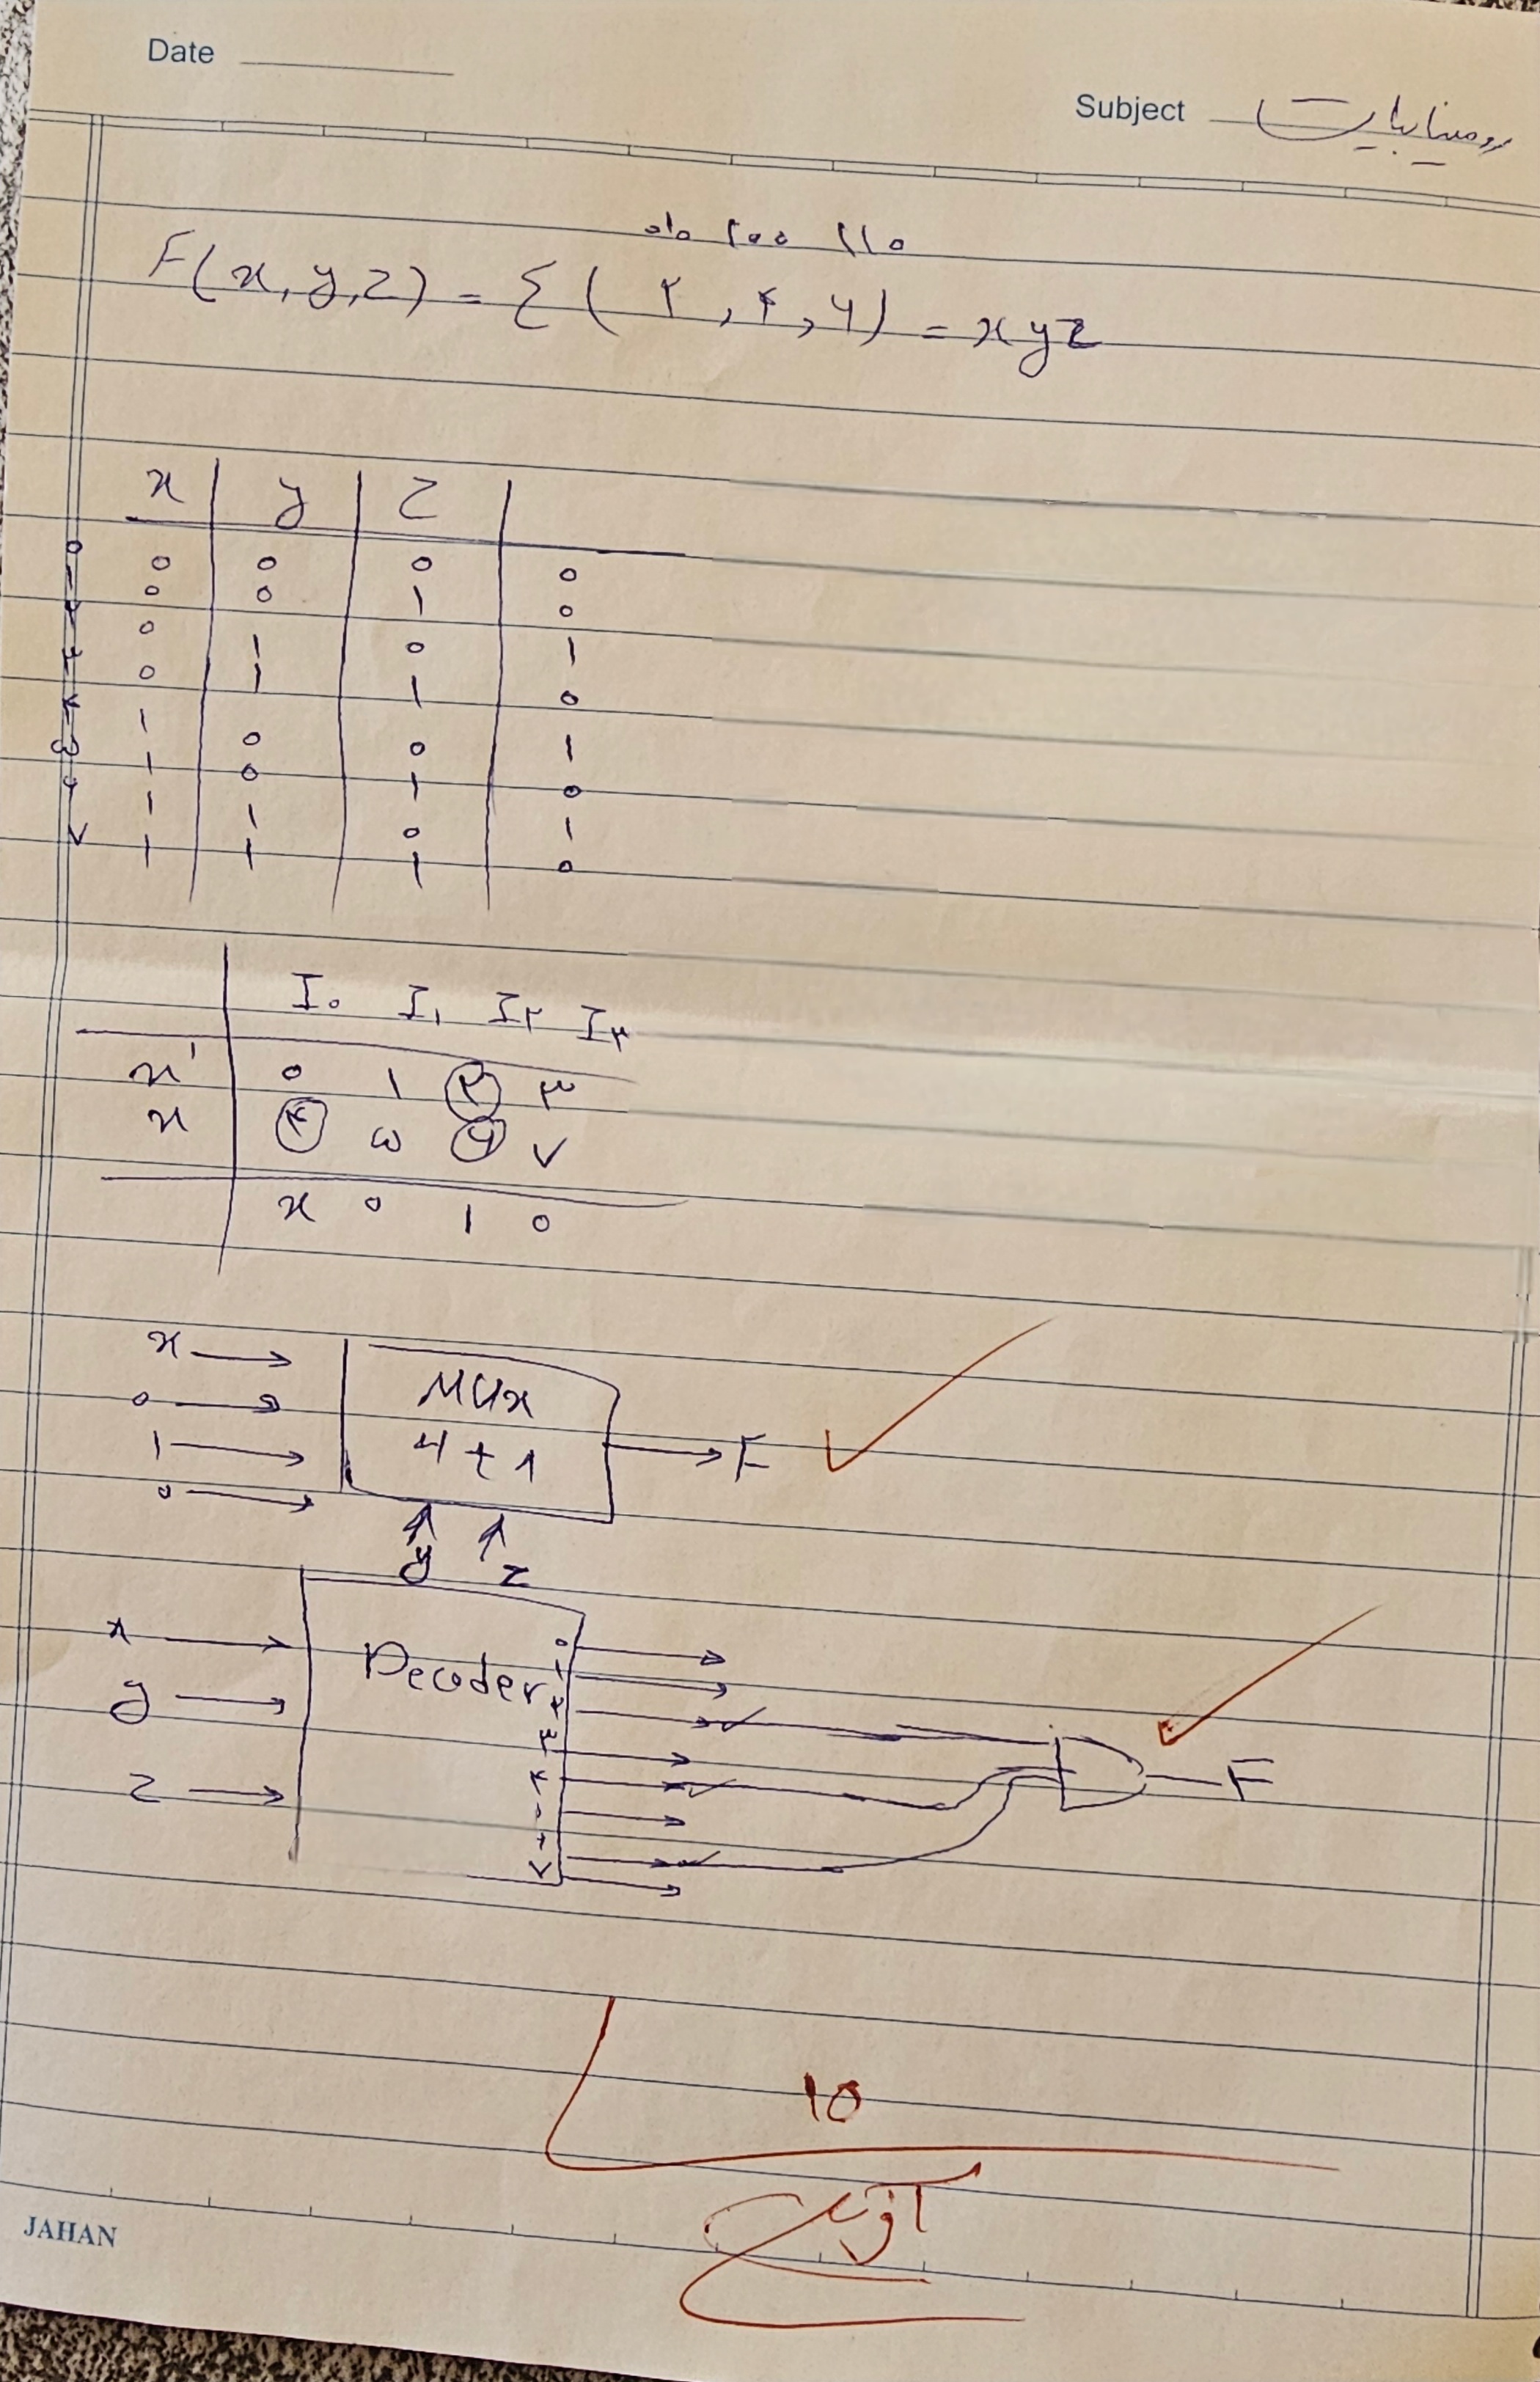 Date
Subject رومینا بیات
۰۱۰ ۱۰۰ ۱۱۰
F(x,y,z) = Σ(۲,۴,۶) = xyz
x y z
۰ ۰ ۰ ۰ ۰
۱ ۰ ۰ ۱ ۰
۲ ۰ ۱ ۰ ۱
۳ ۰ ۱ ۱ ۰
۴ ۱ ۰ ۰ ۱
۵ ۱ ۰ ۱ ۰
۶ ۱ ۱ ۰ ۱
۷ ۱ ۱ ۱ ۰
I۰ I۱ I۲ I۳
x' ۰ ۱ ۲ ۳
x ۴ ۵ ۶ ۷
x ۰ ۱ ۰
x
۰
۱
۰
Mux
4 t 1
F
y z
x
y
z
Decoder
۰
۱
۲
۳
۴
۷
F
۱۵
آفرین
JAHAN